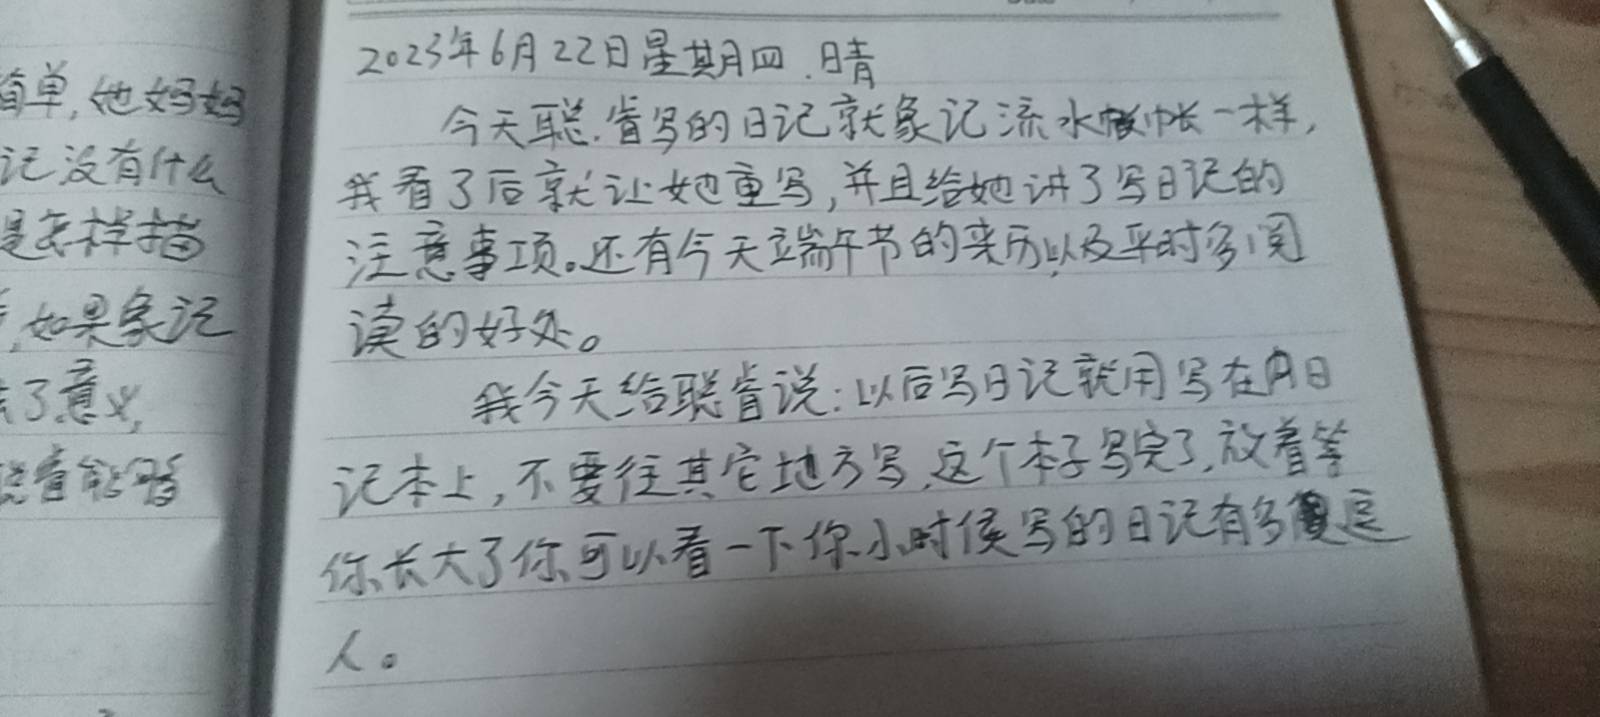 简单,她妈妈
记没有什么
是怎样描
,如果象记
了意义,
能够
2023年6月22日星期四.晴
今天聪.肯写的日记就象记流水帐一样,
我看了后就让她重写,并且给她讲了写日记的
注意事项。还有今天端午节的来历以及平时多阅
读的好处。
我今天给聪肯说:以后写日记就用写在内日
记本上,不要往其它地方写,这个本子写完了,放着等
你长大了你可以看一下你小时候写的日记有多逗
人。